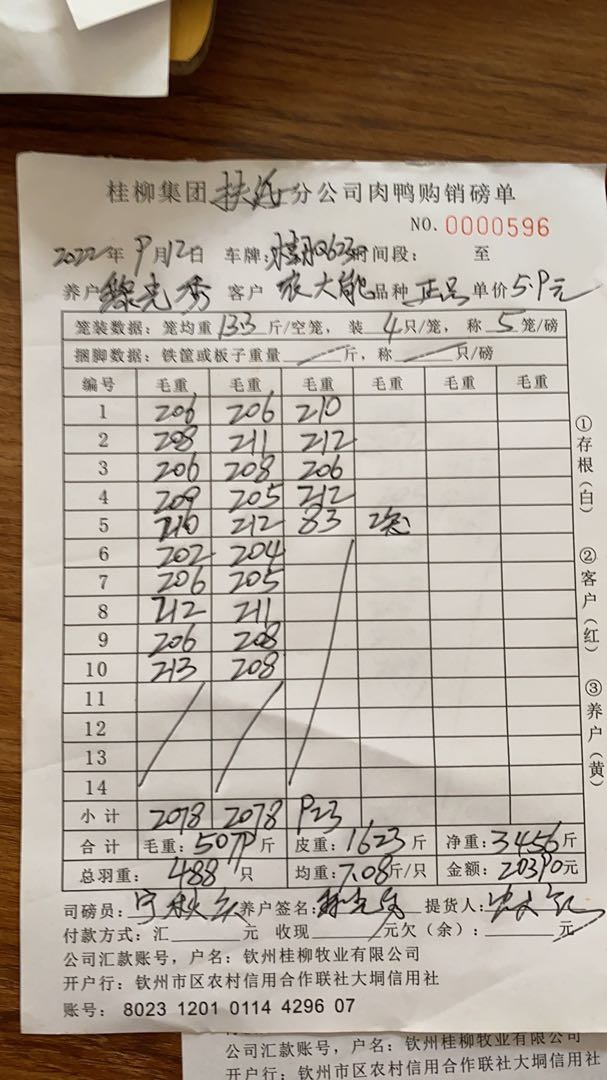 桂柳集团扶延分公司肉鸭购销磅单
NO. 0000596
2022年9月12日 车牌: 时间段: 至
养户 客户 农大能 品种 正品 单价5.9元
笼装数据: 笼均重 13.3 斤/空笼, 装 4 只/笼, 称 5 笼/磅
捆脚数据: 铁筐或板子重量 斤, 称 只/磅
编号 毛重 毛重 毛重 毛重 毛重 毛重
1 206 206 210
2 208 211 212
3 206 208 206
4 209 205 212
5 210 212 83 2笼
6 202 204
7 206 205
8 212 211
9 206 208
10 213 208
11
12
13
14
小计 2078 2078 923
合计 毛重: 5079斤 皮重: 1623斤 净重: 3456斤
总羽重: 488 只 均重: 7.08斤/只 金额: 20390元
司磅员: 养户签名: 提货人:
付款方式: 汇 元 收现 元欠(余): 元
公司汇款账号, 户名: 钦州桂柳牧业有限公司
开户行: 钦州市区农村信用合作联社大垌信用社
账号: 8023 1201 0114 4296 07
①存根(白)
②客户(红)
③养户(黄)
公司汇款账号, 户名: 钦州桂柳牧业有限公司
开户行: 钦州市区农村信用合作联社大垌信用社